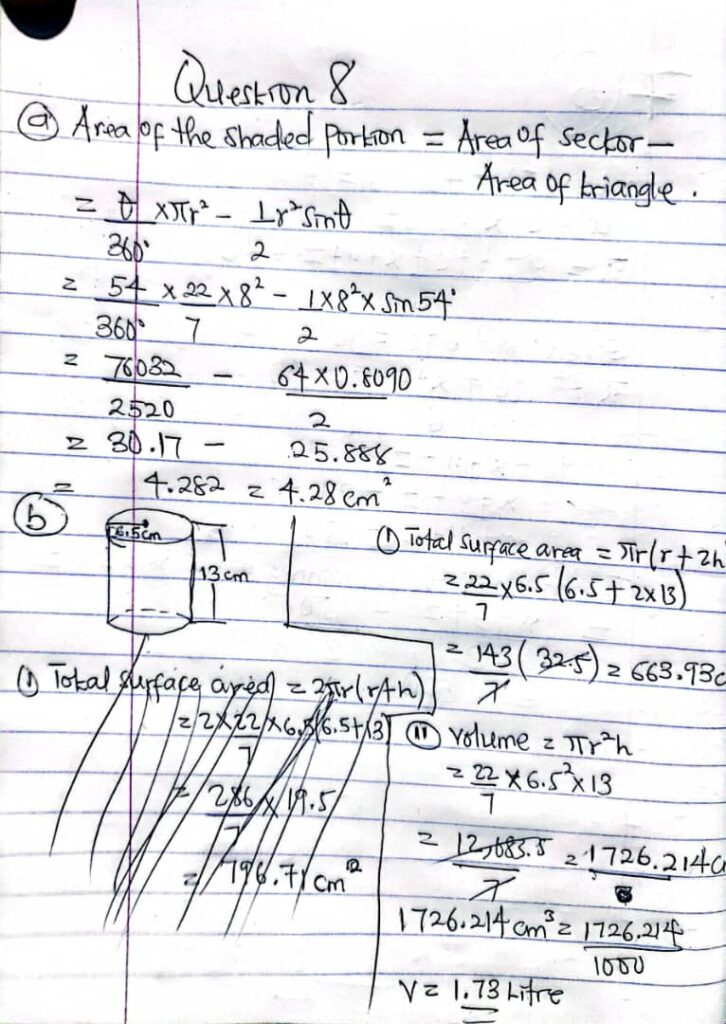 Question 8
ⓐ Area of the shaded portion = Area of sector –
Area of triangle.
= θ/360° × πr² – 1/2 r² sinθ
= 54/360° × 22/7 × 8² – 1/2 × 8² × sin 54°
= 76032/2520 – 64 × 0.8090/2
= 30.17 – 25.888
= 4.282 = 4.28 cm²
ⓑ
6.5cm
13cm
ⓘ Total surface area = 2πr(r+h)
= 2×22/7 × 6.5(6.5+13)
= 286/7 × 19.5
= 796.71 cm²
ⓘ Total surface area = πr(r+2h
= 22/7 × 6.5 (6.5 + 2×13)
= 143/7 (32.5) = 663.93c
ⓘⓘ Volume = πr²h
= 22/7 × 6.5² × 13
= 12,083.5/7 = 1726.214c
1726.214 cm³ = 1726.214/1000
V = 1.73 Litre